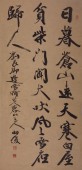 日暮蒼山遠天寒白屋
貧柴門聞犬吠風雪夜
歸人